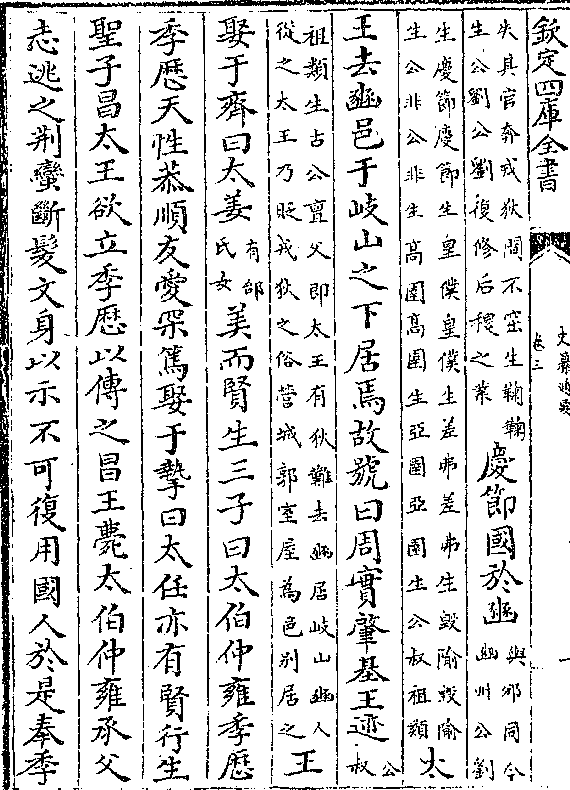 欽定四庫全書
史纂通要
卷三
失其官奔戎狄間不窋生鞠鞠
生公劉公劉復修后稷之業
慶節國於豳
與邠同今
豳州公劉
生慶節慶節生皇僕皇僕生差弗差弗生毀隃毀隃
生公非公非生高圉高圉生亞圉亞圉生公叔祖類
太
王去豳邑于岐山之下居焉故號曰周實肇基王迹
公
叔
祖類生古公亶父即太王有狄難去豳居岐山豳人
從之太王乃貶戎狄之俗營城郭室屋為邑别居之
王
娶于齊曰太姜
有邰
氏女
美而賢生三子曰太伯仲雍季厯
季厯天性恭順友愛罙篤娶于摯曰太任亦有賢行生
聖子昌太王欲立季厯以傳之昌王薨太伯仲雍承父
志逃之荆蠻斷髮文身以示不可復用國人於是奉季